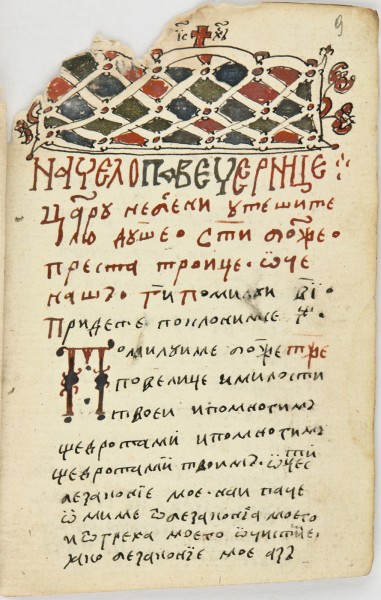 9
іс хс
НАЧЕЛО ПОВЕЧЕРНІЦЕ
Цару небени утешите
лю душео Сти боже
преста троице · ѿче
нашъ Ги помилꙋи ві
Придете поклонимсе г҃
Помилуиме боже
повелице и милости
твоеи и помногим
щедротами и помногим
щедротами твоимъ · ѿчес
безаконїе мое · наи паче
ѿ ми ме ѿ безаконїа моего
и ѿ греха моего ѿчисти
безаконїе мое азъ